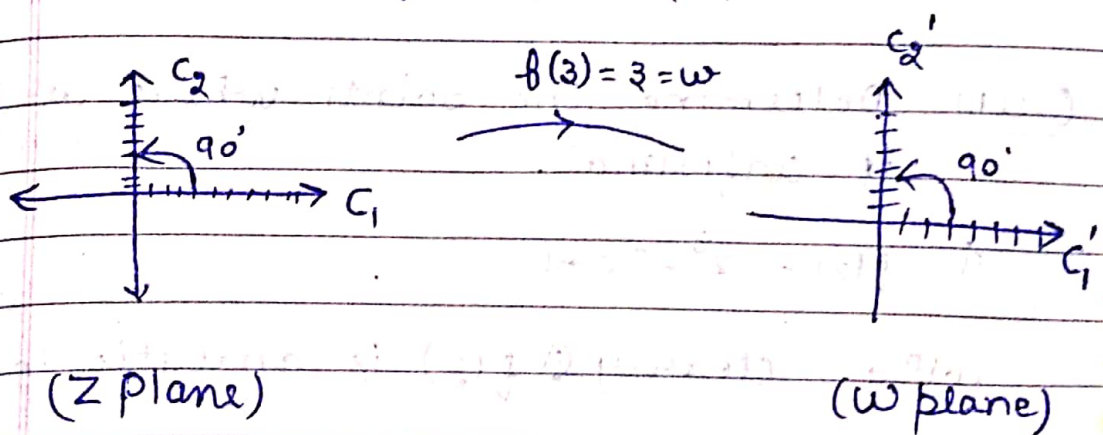 C₂
90°
C₁
f(z) = z = w
C₂'
90°
C₁'
(Z plane)
(W plane)